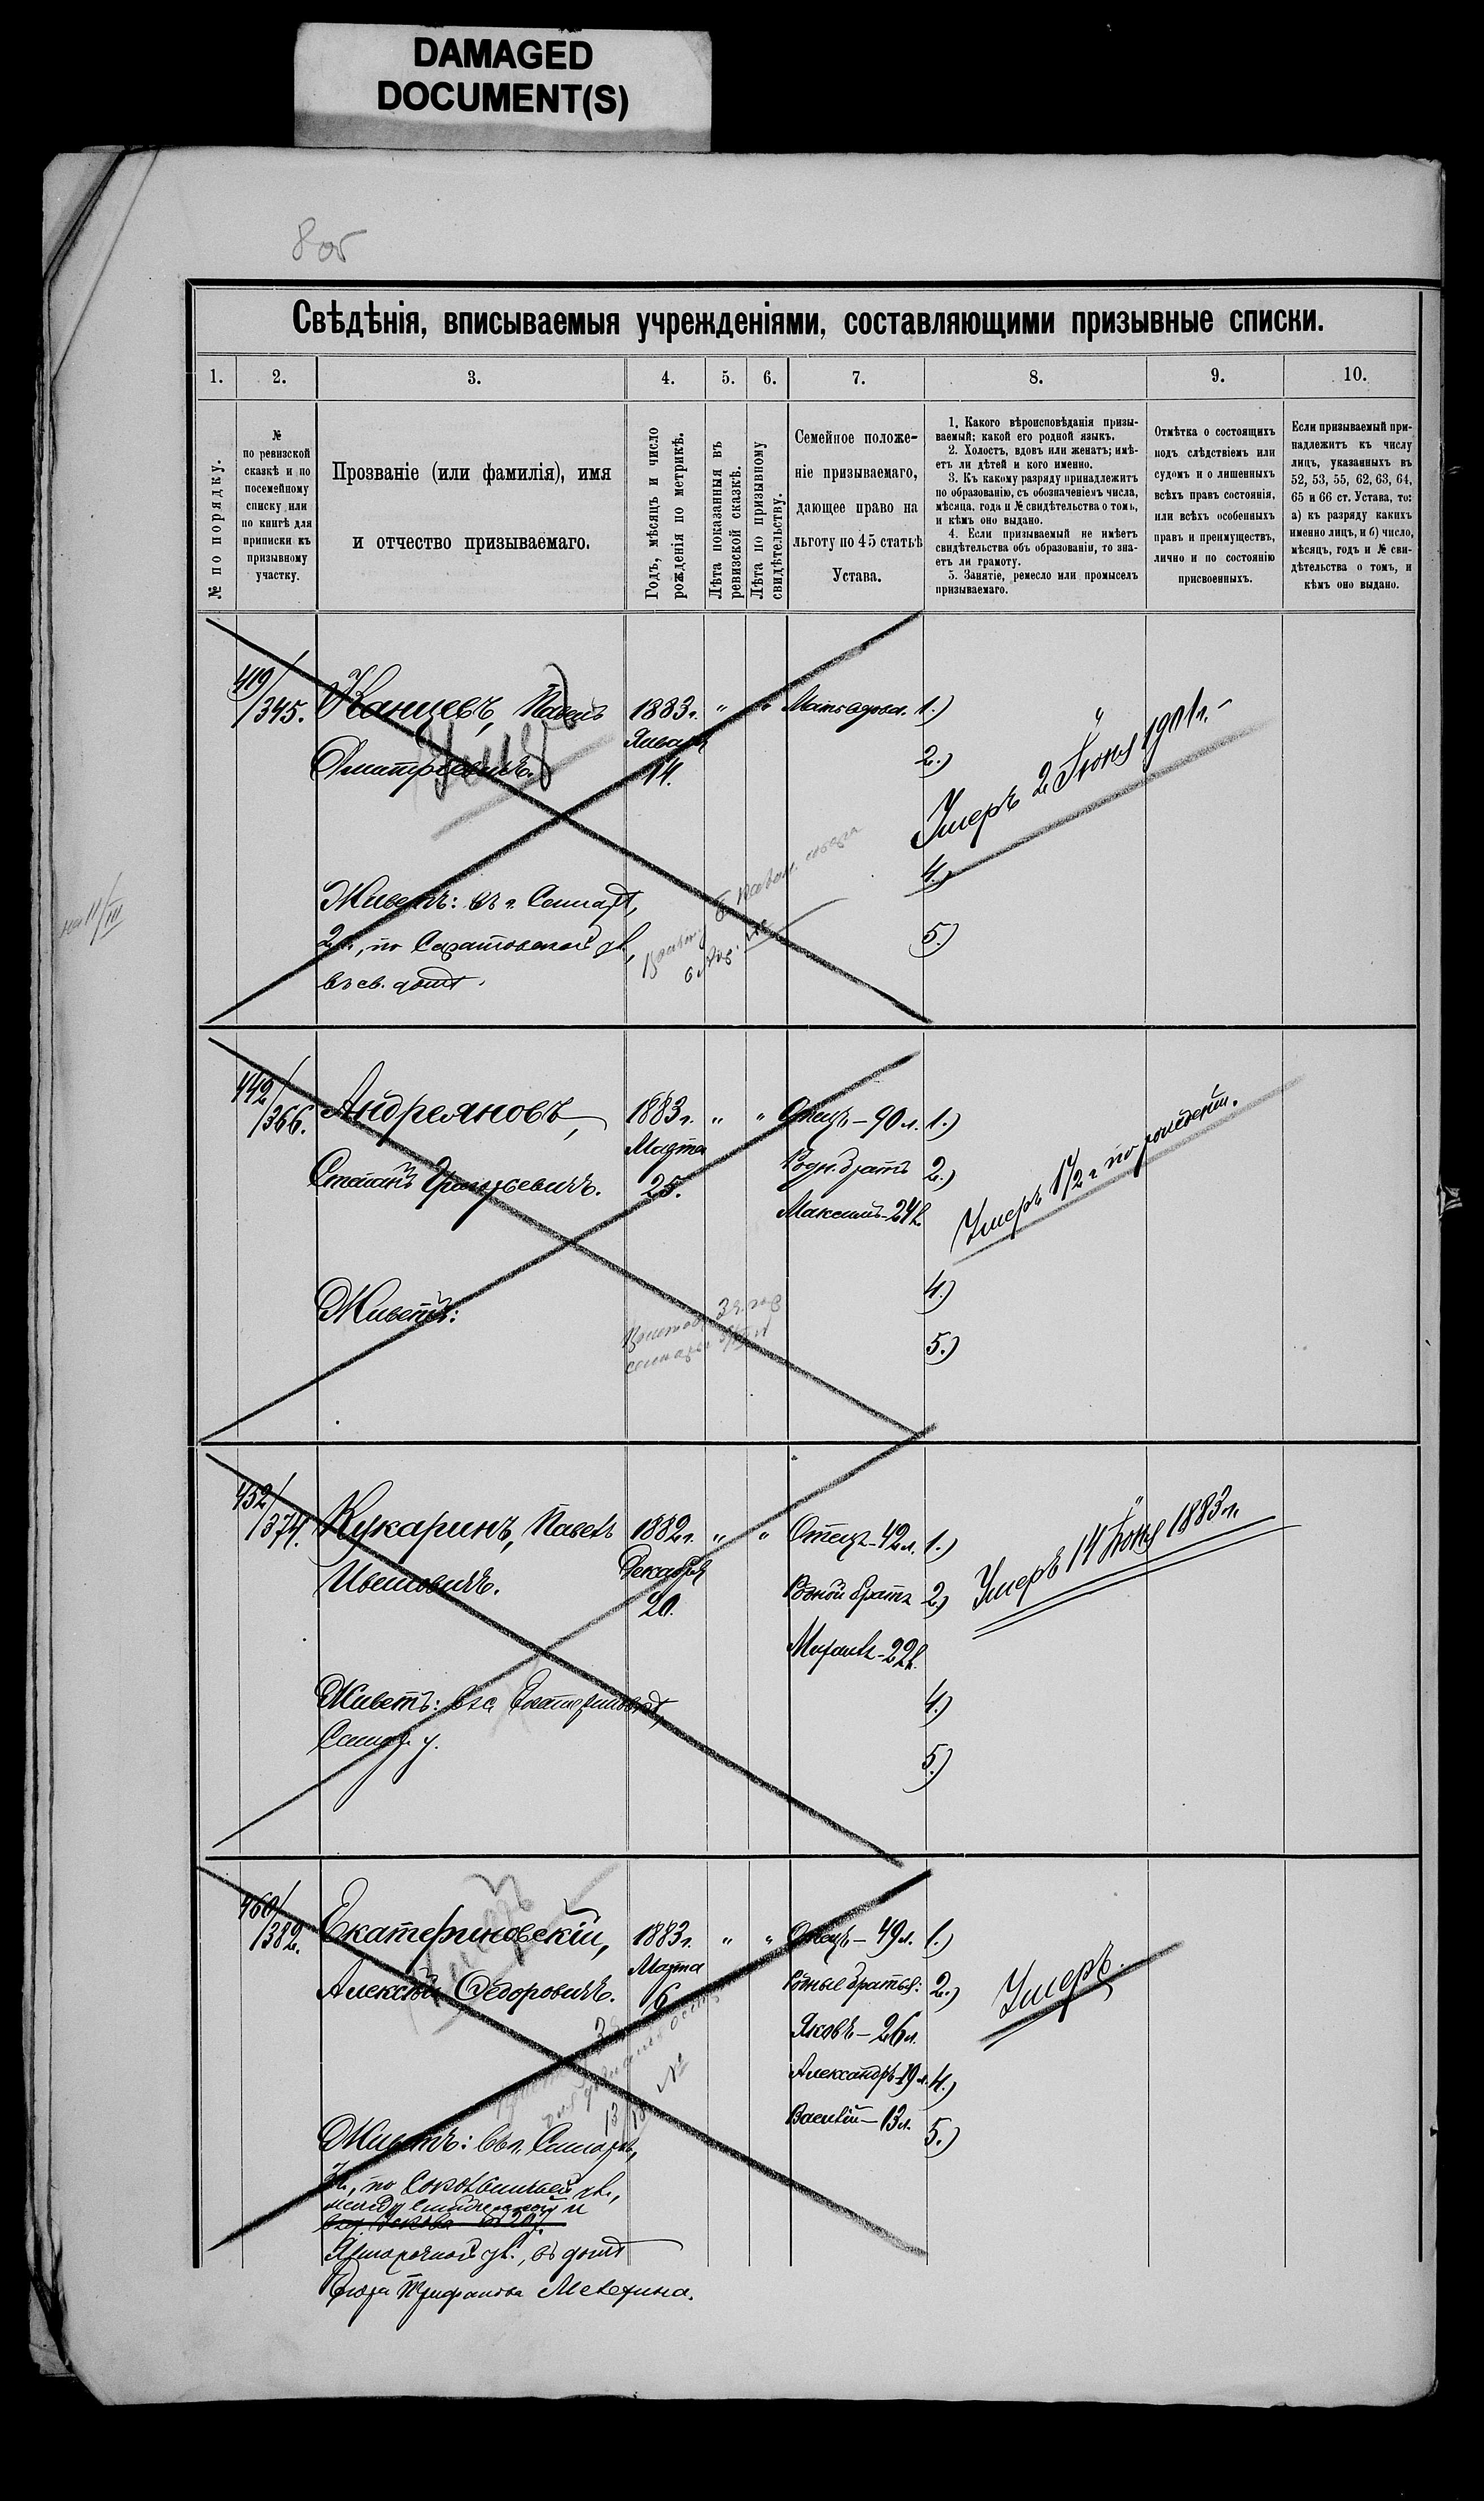 DAMAGED
DOCUMENT(S)
8 об
Свѣдѣнія, вписываемыя учрежденіями, составляющими призывные списки.
1. 2. 3. 4. 5. 6. 7. 8. 9. 10.
№ по порядку.
№
по ревизской
сказкѣ и по
посемейному
списку или
по книгѣ для
приписки къ
призывному
участку.
Прозваніе (или фамилія), имя
и отчество призываемаго.
Годъ, мѣсяцъ и число
рожденія по метрикѣ.
Лѣта показанныя въ
ревизской сказкѣ.
Лѣта по призывному
свидѣтельству.
Семейное положе-
ніе призываемаго,
дающее право на
льготу по 45 статьѣ
Устава.
1. Какого вѣроисповѣданія призы-
ваемый; какой его родной языкъ.
2. Холостъ, вдовъ или женатъ; имѣ-
етъ ли дѣтей и кого именно.
3. Къ какому разряду принадлежитъ
по образованію, съ обозначеніемъ числа,
мѣсяца, года и № свидѣтельства о томъ,
и кѣмъ оно выдано.
4. Если призываемый не имѣетъ
свидѣтельства объ образованіи, то зна-
етъ ли грамоту.
5. Занятіе, ремесло или промыселъ
призываемаго.
Отмѣтка о состоящихъ
подъ слѣдствіемъ или
судомъ и о лишенныхъ
всѣхъ правъ состоянія,
или всѣхъ особенныхъ
правъ и преимуществъ,
лично и по состоянію
присвоенныхъ.
Если призываемый при-
надлежитъ къ числу
лицъ, указанныхъ въ
52, 53, 55, 62, 63, 64,
65 и 66 ст. Устава, то:
а) къ разряду какихъ
именно лицъ, и б) число,
мѣсяцъ, годъ и № сви-
дѣтельства о томъ, и
кѣмъ оно выдано.
419/345. Канцевъ, Павелъ 1883г. " " Мать вдова. 1.)
Дмитріевичъ. Января 2.)
14.
Умеръ 2 Іюня 1901г.
4.)
Живетъ: въ г. Самарѣ,
2ч., по Саратовской ул., 5.)
въ св. домѣ.
442/366. Андреяновъ, 1883г. " " Отецъ - 90 л. 1.)
Марта Родн. братъ 2.)
Степанъ Григорьевичъ. 25.
Максимъ - 24 л.
Умеръ 1 1/2 г по рожденіи.
Живетъ: 4.)
5.)
452/374. Кукаринъ, Павелъ 1882г. " " Отецъ - 42 л. 1.)
Ивановичъ. Декабря
20. Родной братъ 2.)
Умеръ 14 Іюня 1883г.
Михаилъ - 22 л.
Живетъ: въ с. Екатериновкѣ, 4.)
Самар. у.
5.)
460/382. Екатериновскій, 1883г. " " Отецъ - 49 л. 1.)
Марта
Алексѣй Ѳедоровичъ. 6 Родные братья: 2.)
Умеръ.
Яковъ - 26 л.
Александръ - 19 л. 4.)
Василій - 13 л. 5.)
Живетъ: въ г. Самарѣ,
3ч., по Соловьиной ул.,
и
Ярмарочной ул., въ домѣ
Трифанова